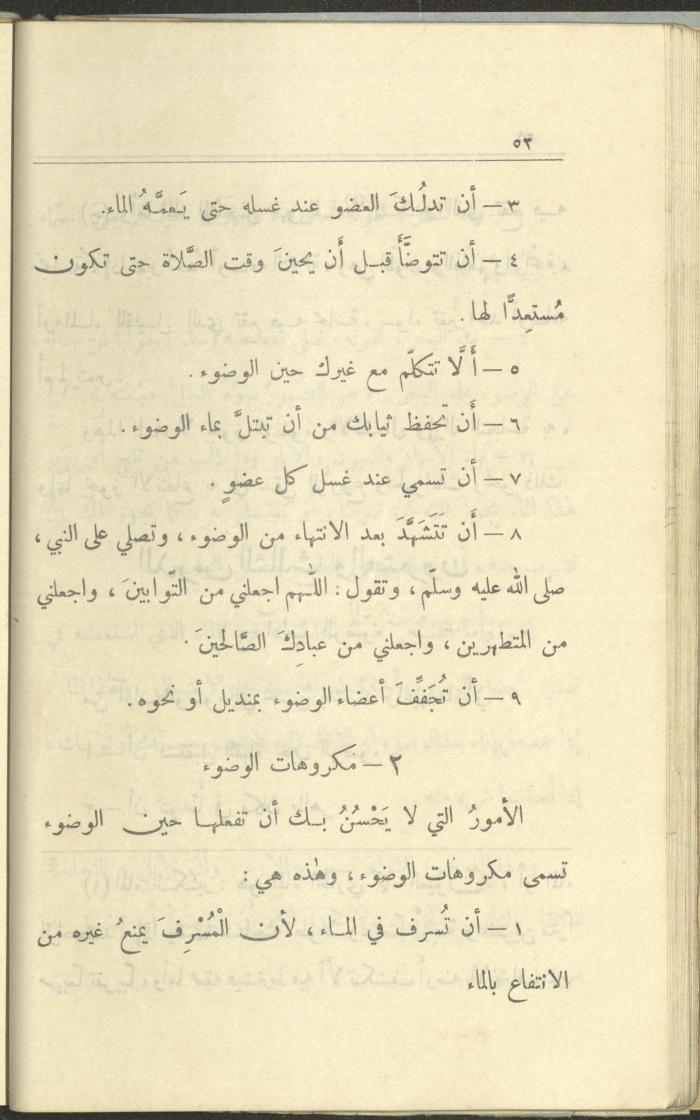 ٥٣
٣ — أن تدلُكَ العضو عند غسله حتى يَعمَّهُ الماء.
٤ — أن تتوضَّأَ قبل أَن يحينَ وقت الصَّلاة حتى تكون
مُستعِدًّا لها .
٥ — أَلَّا تتكلّم مع غيرك حين الوضوء .
٦ — أَن تحفظ ثيابك من أن تبتلَّ بماء الوضوء .
٧ — أن تسمي عند غسل كل عضوٍ .
٨ — أَن تَتَشَهَّدَ بعد الانتهاء من الوضوء ، وتصلي على النبي ،
صلى الله عليه وسلّم ، وتقول : اللّهم اجعلني من التّوابينَ ، واجعلني
من المتطهرين ، واجعلني من عبادِكَ الصَّالحينَ .
٩ — أن تُجَفِّفَ أعضاء الوضوء بمنديل أو نحوه .
٢ — مكروهات الوضوء
الأمورُ التي لا يَحْسُنُ بك أن تفعلها حين الوضوء
تسمى مكروهات الوضوء ، وهذه هي :
١ — أن تُسرف في الماء ، لأن الْمُسْرِفَ يمنعُ غيره من
الانتفاع بالماء